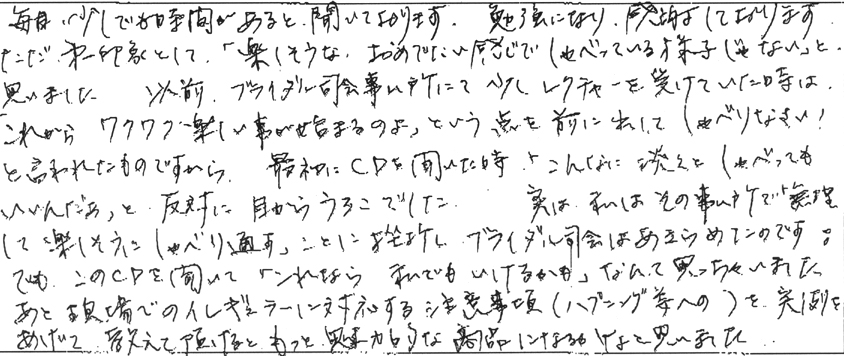 毎日、少しでも時間があると、聞いております。勉強になり、感謝しております。
ただ、第一印象として、「楽しそうな、おめでたい感じでしゃべっている様子じゃない」と
思いました 以前、ブライダル司会事務所にて少しレクチャーを受けていた時は、
「これから ワクワク楽しい事が始まるのよ」という点を前に出してしゃべりなさい！
と言われたものですから、最初にCDを聞いた時、「こんなに淡々としゃべっても
いいんだぁ」と反対に目からうろこでした 実は、私はその事務所で「無理
して楽しそうにしゃべり通す」ことに挫折し、ブライダル司会はあきらめたのです。
でも、このCDを聞いて「これなら私でもいけるかも」なんて思っちゃいました
あと現場でのイレギュラーに対応する注意事項（ハプニング等への）を、実例を
あげて教えて頂けるともっと魅力的な商品になるかなと思いました